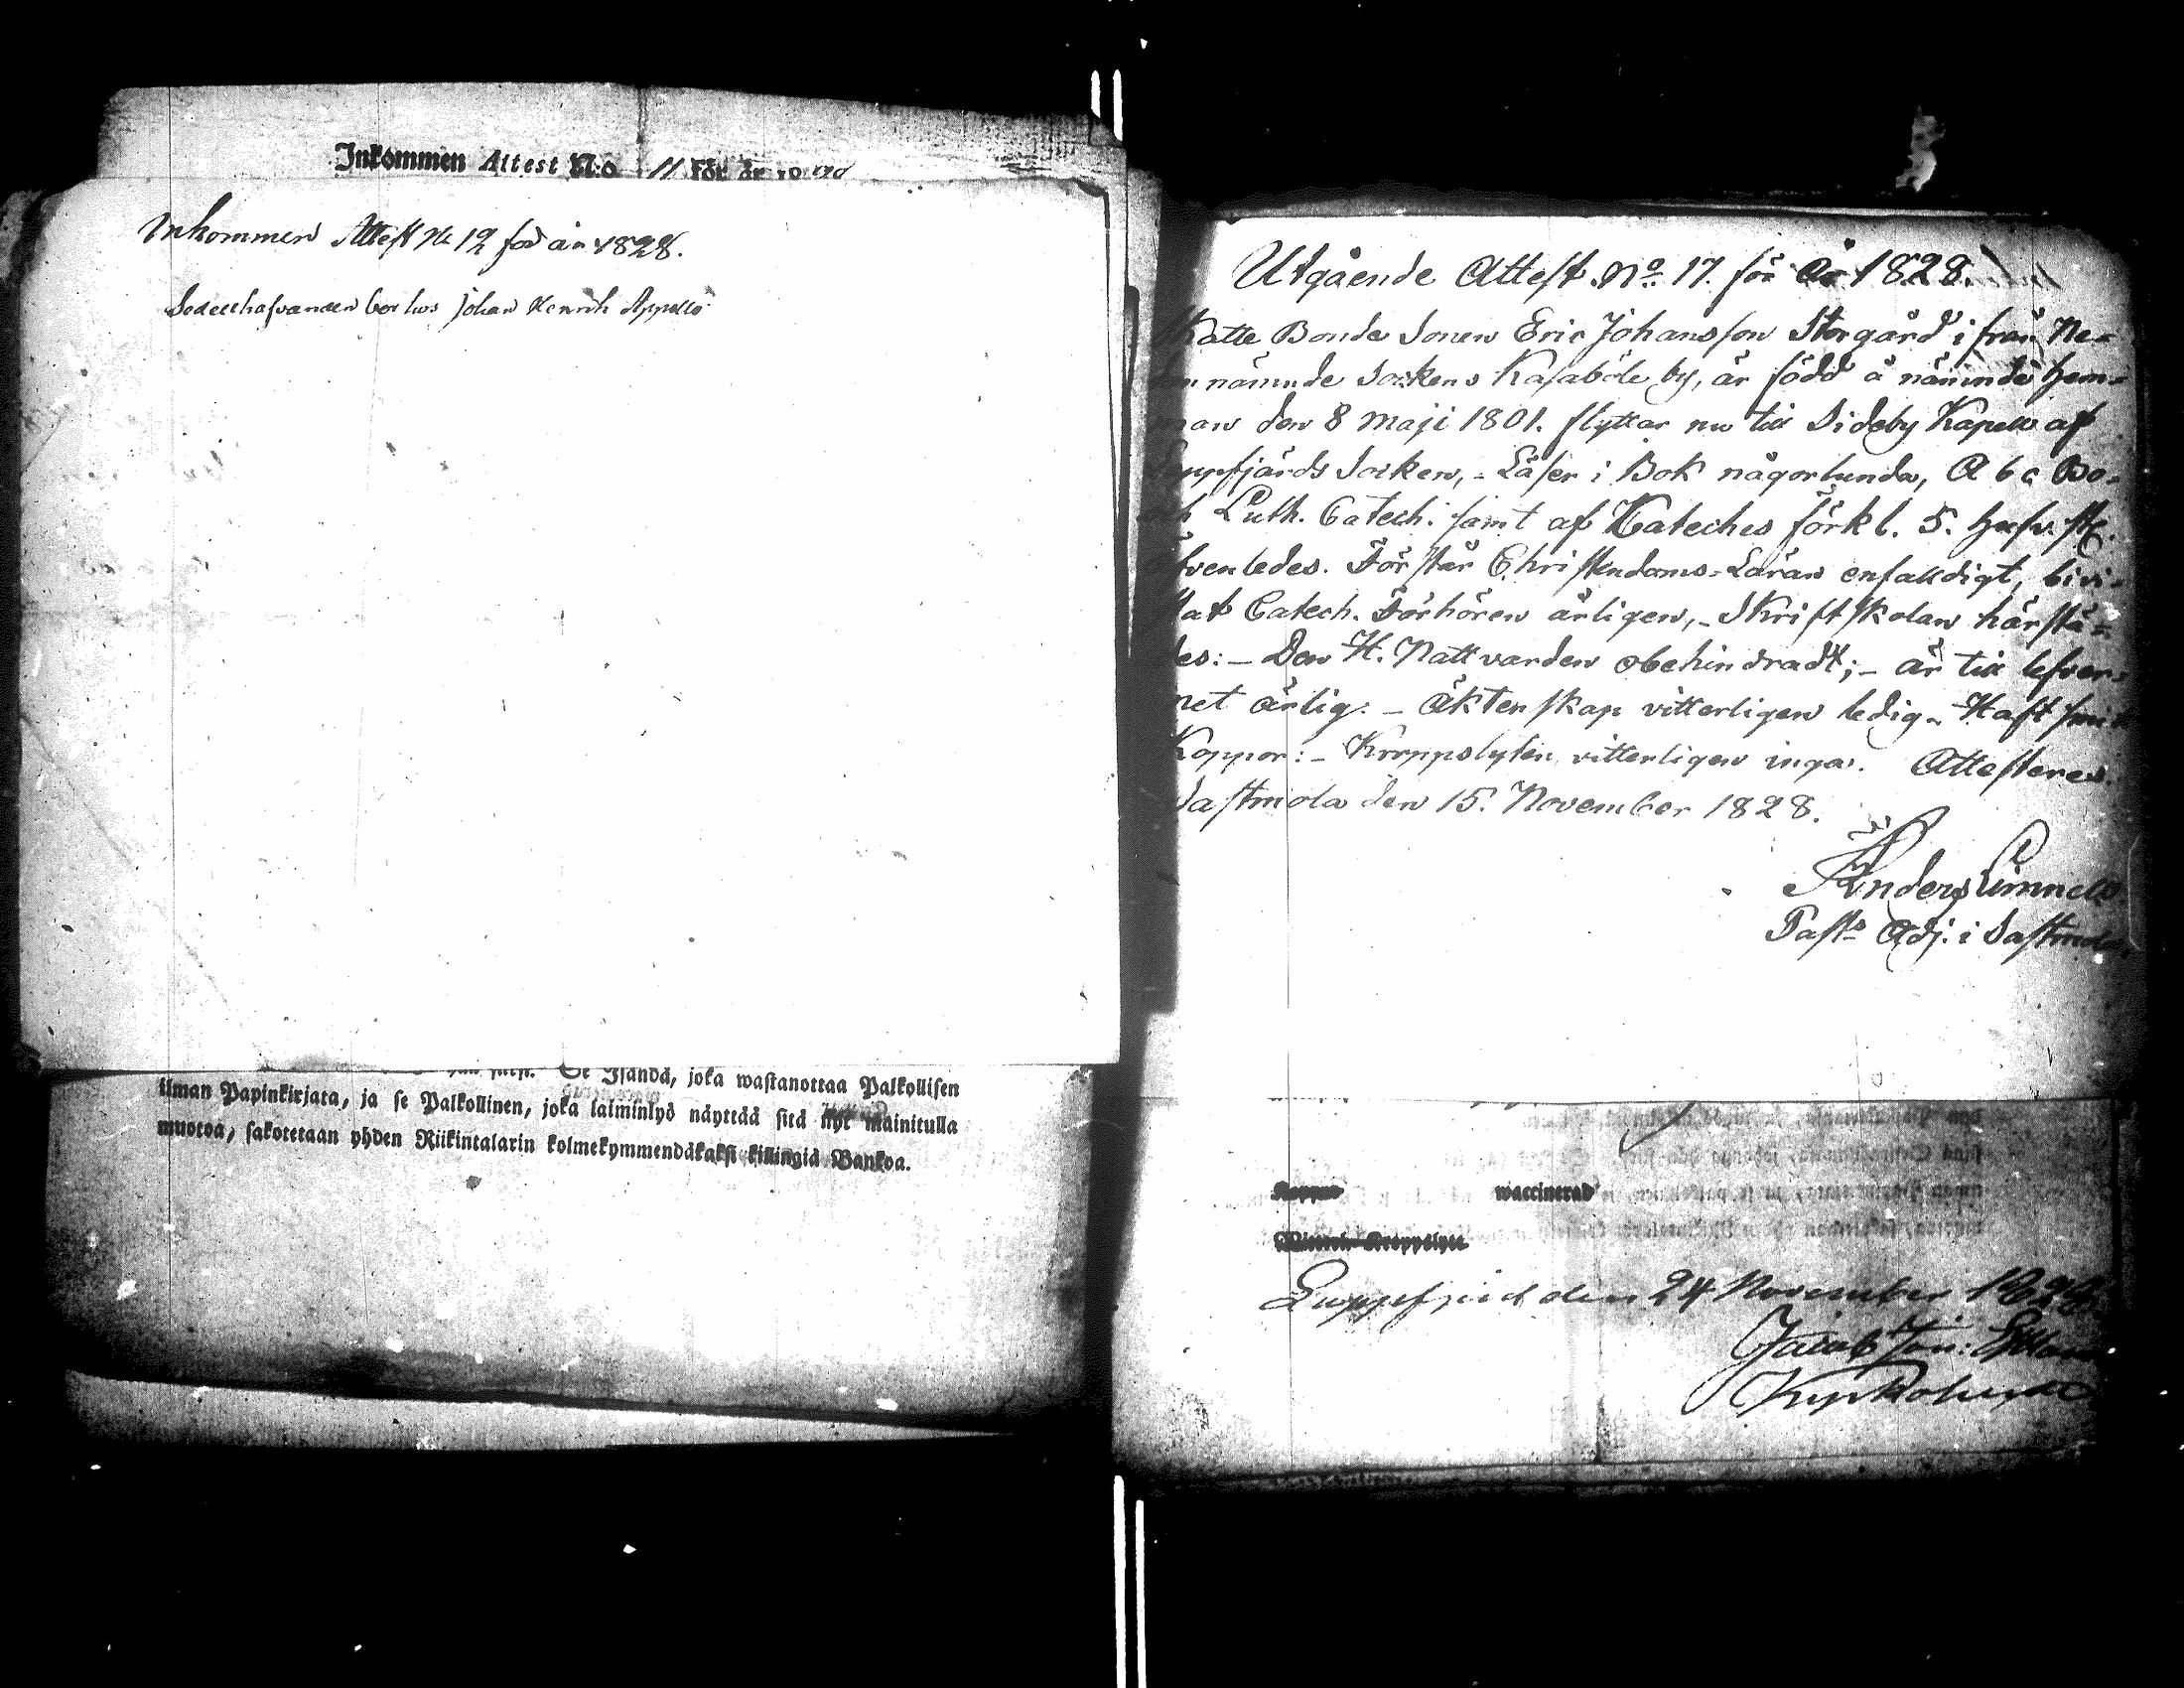 Inkommen Attest N:o 11 för år
Inkommen Attest No 12 för år 1828.
Sedelhafvanden bor hos Johan Henrik Appellö
ilman Papinkirjata, ja se Palkollinen, joka laiminlyö näyttää sitä nyt mainitulla
Isändä, joka wastanottaa Palkollisen
muotoa, sakotetaan yhden Riikintalarin kolmekymmendäkaksi killingiä Bankoa.
Utgående Attest No. 17. för År 1828.
Bonde Sonen Eric Johansson Storgård ifrån Ne-
nämnde Sockens Kasaböle by, är född å nämnde Hem-
man den 8 Maji 1801. flyttar nu till Sideby Kapell af
Lappfjärds Socken, - Läser i Bok någorlunda, A b c Bo-
och Luth. Catech. samt af Kateches förkl. 5. Hufv. st.
äfvenledes. Förstår Christendoms-Läran enfalldigt, bivi-
stat Catech. Förhören årligen, - Skriftskolan härstä-
des: - Den H. Nattvarden obehindradt; - är till lefver-
net ärlig: - Äktenskap vitterligen ledig - Haft
Koppor: - Kroppslyten vitterligen inga. Attesteres.
Sastmola den 15. November 1828.
Anders
Past: Adj. i Sastmola
Koppor waccinerad
Kroppslyte
Lappfjerd den 24 November 1828.
Jacob